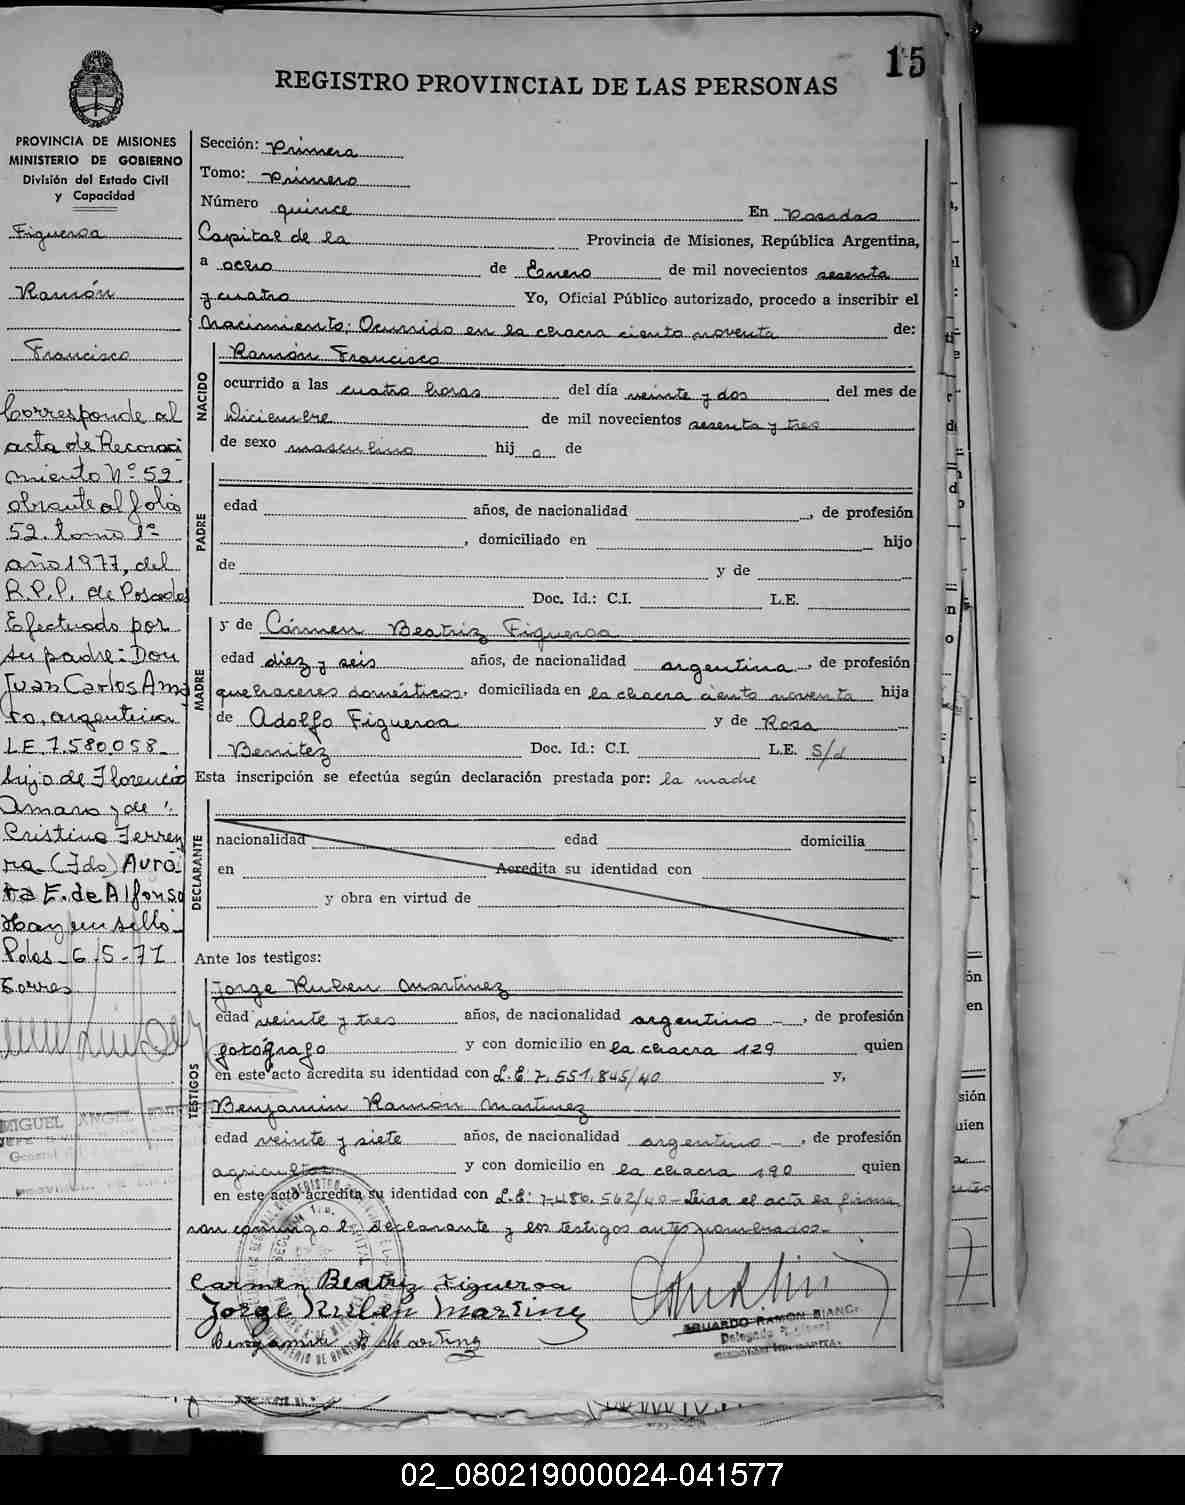 15
REGISTRO PROVINCIAL DE LAS PERSONAS
PROVINCIA DE MISIONES
MINISTERIO DE GOBIERNO
División del Estado Civil
y Capacidad
Figueroa
Ramón
Francisco
Corresponde al
acta de Reconoci
miento Nº 52
obrante al folio
52. tomo 1º
año 1977, del
R.P.P. de Posadas
Efectuado por
su padre: Don
Juan Carlos Ama
ro, argentino
L.E. 7.580.058
hijo de Florencio
Amaro y de
Cristina Ferrey
ra (Fdo) Auro
ra E. de Alfonso
Hay un sello
Pdas 6/5-77
Torres
MIGUEL ANGEL
Sección: Primera
Tomo: Primero
Número quince En Posadas
Capital de la Provincia de Misiones, República Argentina,
a ocho de Enero de mil novecientos sesenta
y cuatro Yo, Oficial Público autorizado, procedo a inscribir el
Nacimiento: Ocurrido en la chacra ciento noventa de:
NACIDO
Ramón Francisco
ocurrido a las cuatro horas del día veinte y dos del mes de
Diciembre de mil novecientos sesenta y tres
de sexo masculino hij o de
PADRE
edad años, de nacionalidad , de profesión
, domiciliado en hijo
de y de
Doc. Id.: C.I. L.E.
MADRE
y de Cármen Beatriz Figueroa
edad diez y seis años, de nacionalidad argentina, de profesión
quehaceres domésticos, domiciliada en la chacra ciento noventa hija
de Adolfo Figueroa y de Rosa
Benitez Doc. Id.: C.I. L.E. S/d
Esta inscripción se efectúa según declaración prestada por: la madre
DECLARANTE
nacionalidad edad domicilia
en Acredita su identidad con
y obra en virtud de
Ante los testigos:
TESTIGOS
Jorge Ruben Martinez
edad veinte y tres años, de nacionalidad argentino, de profesión
fotógrafo y con domicilio en la chacra 129 quien
en este acto acredita su identidad con L.E: 7.551.845/40 y,
Benjamin Ramón Martinez
edad veinte y siete años, de nacionalidad argentino, de profesión
agricultor y con domicilio en la chacra 190 quien
en este acto acredita su identidad con L.E: 7.480.562/40 - Leida el acta la firma
ron conmigo la declarante y los testigos antes nombrados.
Carmen Beatriz Figueroa
Jorge Ruben Martinez
Benjamin R Martinez
EDUARDO RAMON BIANC
02_080219000024-041577